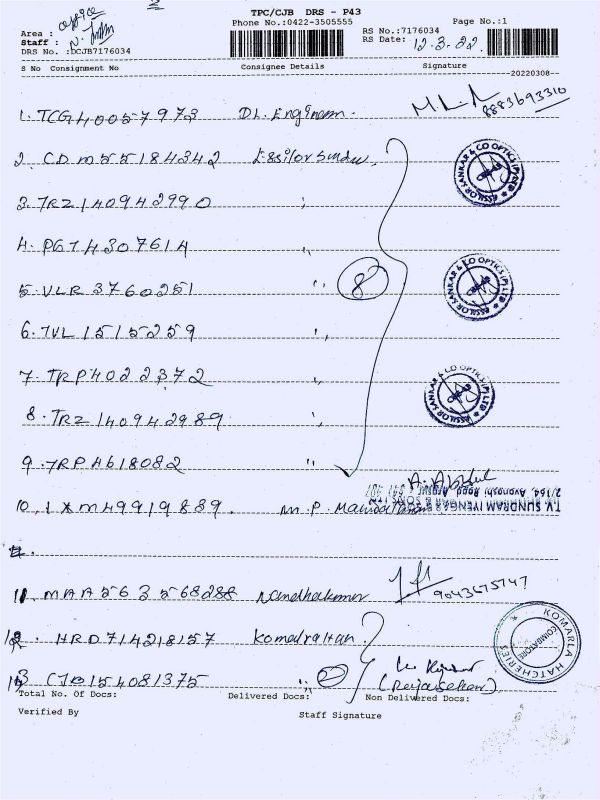 TPC/CJB DRS - P43
Phone No.:0422-3505555 Page No.:1
Area : office
Staff :
DRS No. :DCJB7176034
RS No.:7176034
RS Date: 12.3.22
S No Consignment No Consignee Details Signature
20220308
1. TCG40057973 D.L. Engineers
8883693310
2. CDM55184342 Essilor
3. TRZ140942990 "
4. PGT4307614 "
5. VLR3760251 "
8
6. TVL1515259 "
7. TRP4022372 "
8. TRZ140942989 "
9. TRP4618082 "
ESSILOR SANKAR & CO OPTICS (P) LTD
ESSILOR SANKAR & CO OPTICS (P) LTD
ESSILOR SANKAR & CO OPTICS (P) LTD
A. Abdul
T.V. SUNDRAM IYENGAR & SONS
2/164, Avanashi Road,
10. IXM49919839. M. P.
11. MAA563568288 Nandhakumar
12. HRD714218157 Komarlahan
13 CJB154081375 " 2
(Rajasekar)
KOMARLA HATCHERIES
COIMBATORE
Total No. Of Docs: Delivered Docs: Non Delivered Docs:
Verified By Staff Signature